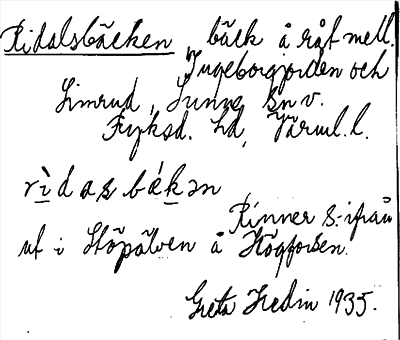 Ridalsbäcken bäck å råg mell.
Ingeborgjorden och
Simrud, Sunne sn v.
Fryksd. hd, Värml. l.
rìdasbǽkən
Rinner s. ifrån
ut i Stöpälven å Högforsen.
Greta Hedin 1935.